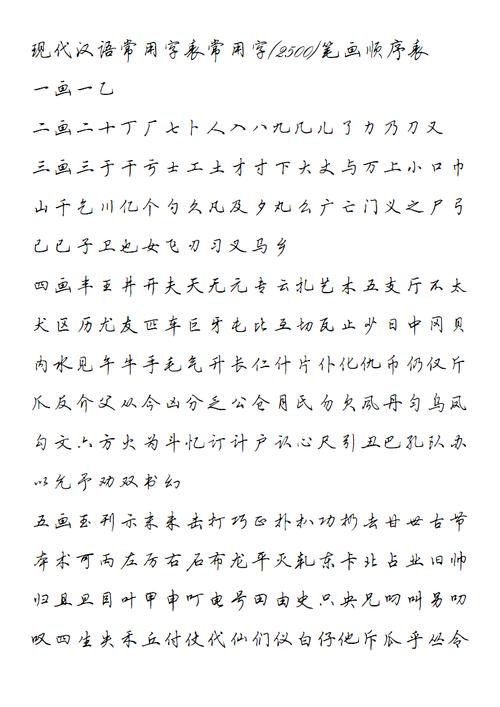 现代汉语常用字表常用字(2500)笔画顺序表
一画一乙
二画二十丁厂七卜人入八九几儿了力乃刀又
三画三于干亏士工土才寸下大丈与万上小口巾
山千乞川亿个勺久凡及夕丸么广亡门义之尸弓
己已子卫也女飞刃习叉马乡
四画丰王井开夫天无元专云扎艺木五支厅不太
犬区历尤友匹车巨牙屯比互切瓦止少日中冈贝
内水见午牛手毛气升长仁什片仆化仇币仍仅斤
爪反介父从今凶分乏公仓月氏勿欠风丹匀乌凤
勾文六方火为斗忆订计户认心尺引丑巴孔队办
以允予劝双书幻
五画玉刊示末未击打巧正扑扒功扔去甘世古节
本术可丙左厉右石布龙平灭轧东卡北占业旧帅
归且旦目叶甲申叮电号田由史只央兄叼叫另叨
叹四生失禾丘付仗代仙们仪白仔他斥瓜乎丛令